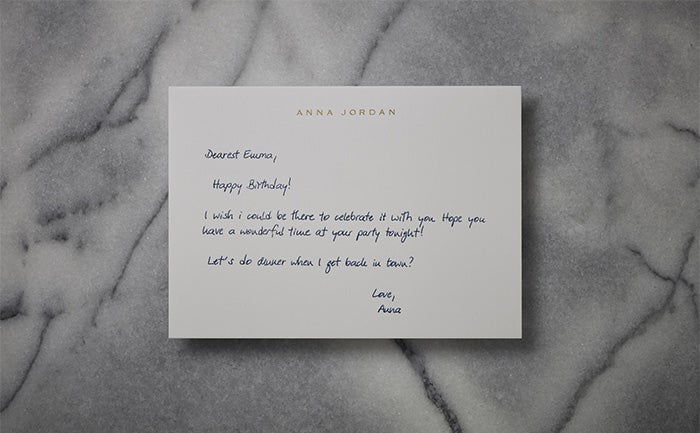 ANNA JORDAN
Dearest Emma,
Happy Birthday!
I wish i could be there to celebrate it with you Hope you
have a wonderful time at your party tonight!
Let's do dinner when I get back in town?
Love,
Anna